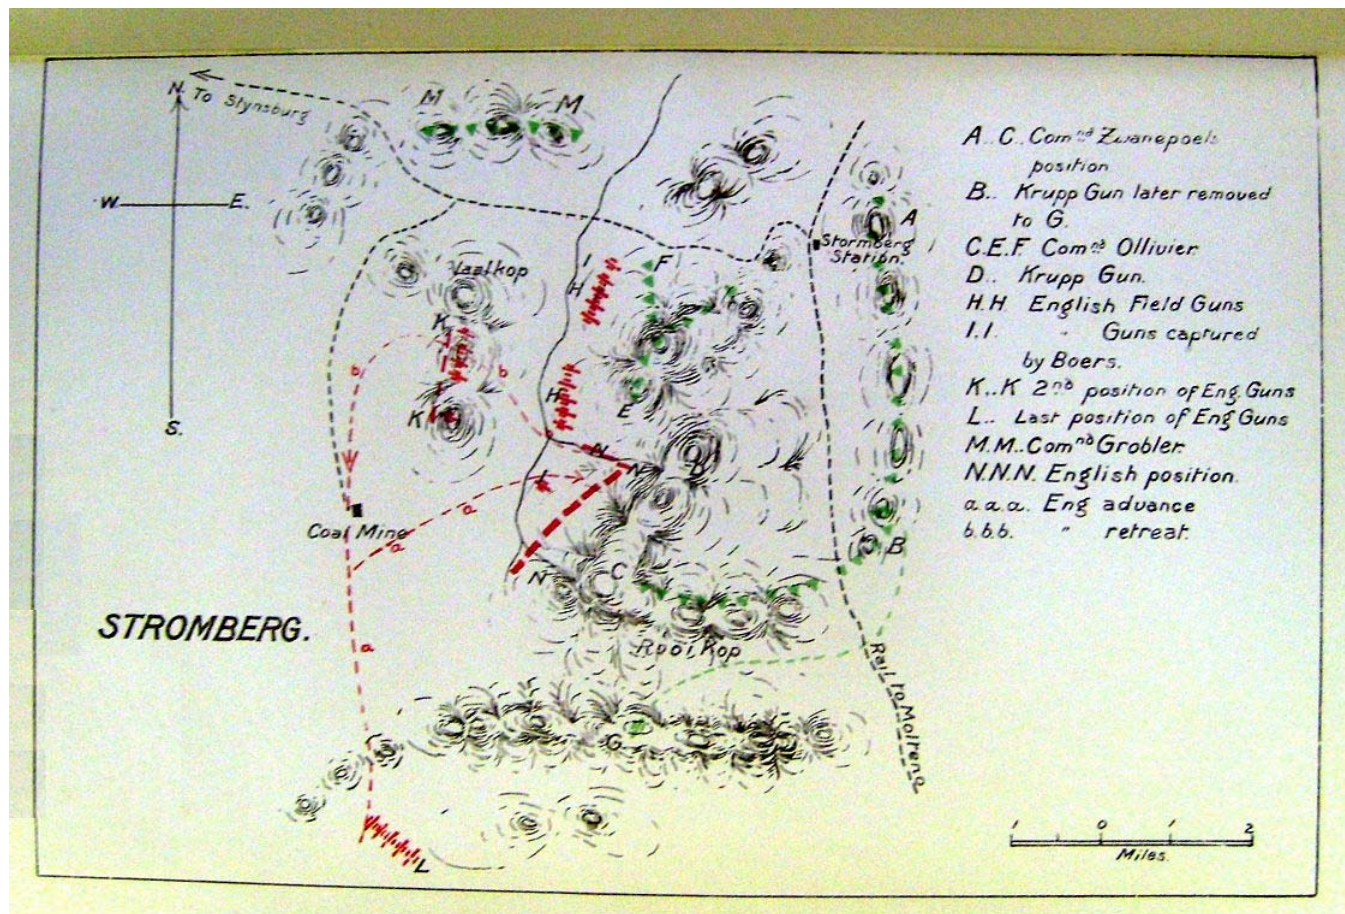 N. To Stynsburg
M M
W. E.
S.
A
Stormberg
Station.
Vaalkop
I
F
H
K
b
b
H
E
K
N
N
D
K
a
Coal Mine
a
B
N
C
STROMBERG.
a
Rooi Kop
Rail to Molteno
G
L
A..C. Comnd Zwanepoels
position
B.. Krupp Gun later removed
to G.
C.E.F. Comnd Ollivier.
D.. Krupp Gun.
H.H English Field Guns
I.I. " Guns captured
by Boers.
K..K 2nd position of Eng. Guns
L.. Last position of Eng Guns
M.M.. Comnd Grobler.
N.N.N. English position.
a.a.a. Eng advance
b.b.b. " retreat.
1 0 1 2
Miles.